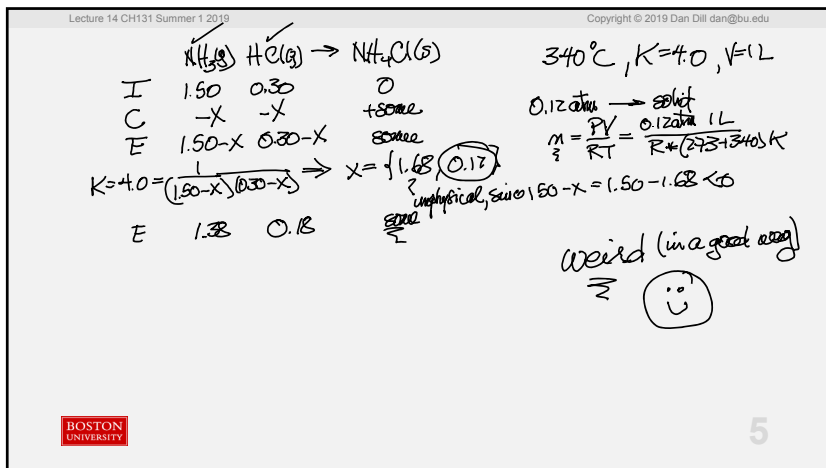 Lecture 14 CH131 Summer 1 2019
Copyright © 2019 Dan Dill dan@bu.edu
NH₃(g) HCl(g) → NH₄Cl(s)
340°C, K=4.0, V=1L
I 1.50 0.30 0
C -X -X +some
0.12 atm → solid
E 1.50-X 0.30-X some
n = PV/RT = 0.12 atm 1L / R*(273+340)K
K=4.0= 1/(1.50-X)(0.30-X) ⇒ X = {1.68, 0.12}
unphysical, since 1.50-x = 1.50-1.68 <0
E 1.38 0.18 some
weird (in a good way)
BOSTON
UNIVERSITY
5